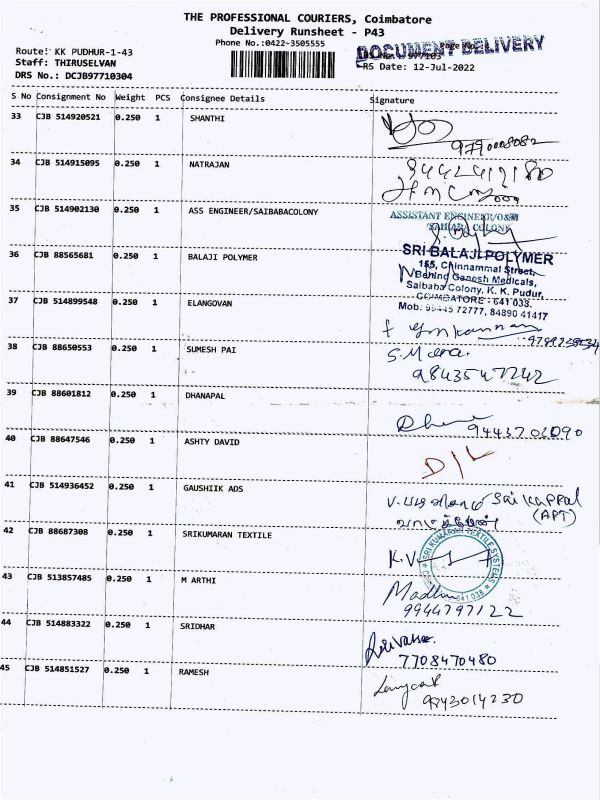 THE PROFESSIONAL COURIERS, Coimbatore
Delivery Runsheet - P43
Phone No.:0422-3505555
DOCUMENT DELIVERY
Route: KK PUDHUR-1-43
Staff: THIRUSELVAN
DRS No.: DCJB97710304
RS Date: 12-Jul-2022
S No Consignment No Weight PCS Consignee Details Signature
33 CJB 514920521 0.250 1 SHANTHI
34 CJB 514915095 0.250 1 NATRAJAN
35 CJB 514902130 0.250 1 ASS ENGINEER/SAIBABACOLONY
ASSISTANT ENGINEER/O&M
SAIBABA COLONY
36 CJB 88565681 0.250 1 BALAJI POLYMER
SRI BALAJI POLYMER
155, Chinnammal Street,
Behind Ganesh Medicals,
Saibaba Colony, K. K. Pudur,
COIMBATORE - 641 038.
Mob: 99445 72777, 84890 41417
37 CJB 514899548 0.250 1 ELANGOVAN
38 CJB 88650553 0.250 1 SUMESH PAI
39 CJB 88601812 0.250 1 DHANAPAL
9443702090
40 CJB 88647546 0.250 1 ASHTY DAVID
D/L
41 CJB 514936452 0.250 1 GAUSHIIK ADS
(APT)
42 CJB 88687308 0.250 1 SRIKUMARAN TEXTILE
K.V
SRI KUMARAN TEXTILE SYSTEMS
43 CJB 513857485 0.250 1 M ARTHI
9944797122
44 CJB 514883322 0.250 1 SRIDHAR
7708470480
45 CJB 514851527 0.250 1 RAMESH
9943014230